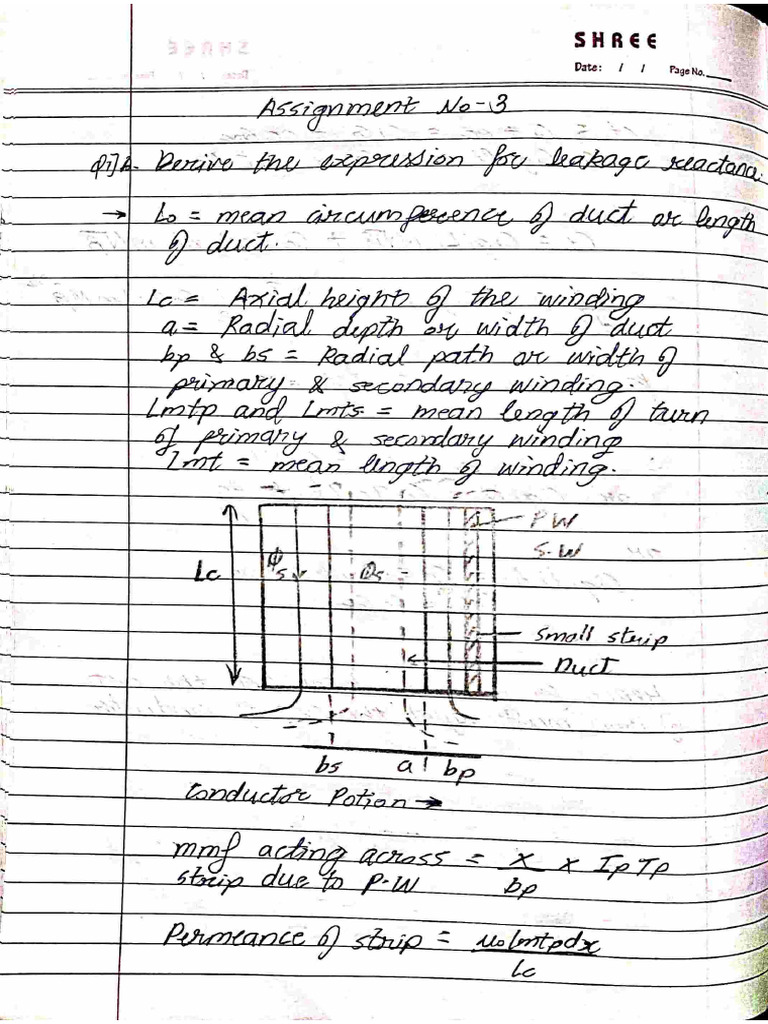 SHREE
Date: / / Page No.
Assignment No-3
Q1]A. Derive the expression for leakage reactance.
→ Lo = mean circumference of duct or length
of duct.
Lc = Axial height of the winding
a = Radial depth or width of duct
bp & bs = Radial path or width of
primary & secondary winding.
Lmtp and Lmts = mean length of turn
of primary & secondary winding
Lmt = mean length of winding.
P W
S.W
Lc
small strip
Duct
bs a bp
Conductor Potion →
mmf acting across = x/bp x Ip Tp
strip due to P-W
Permeance of strip = μo lmtp dx / Lc